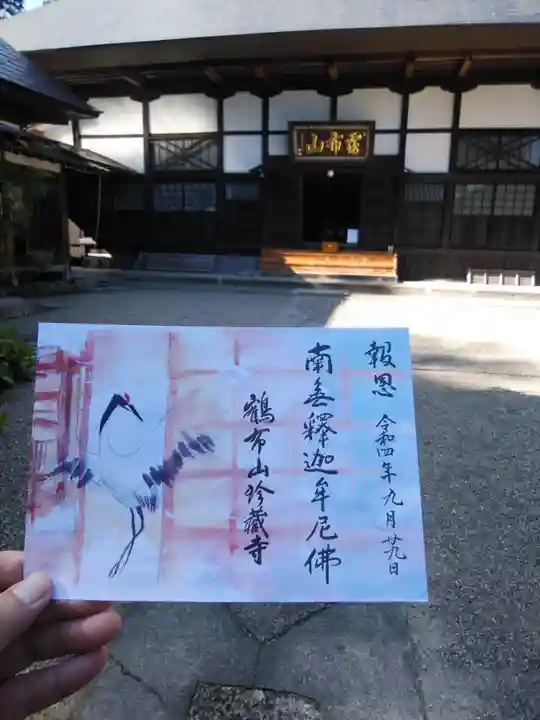 山布靏
報恩 令和四年九月廿九日
南無釋迦牟尼佛
鶴布山珍蔵寺